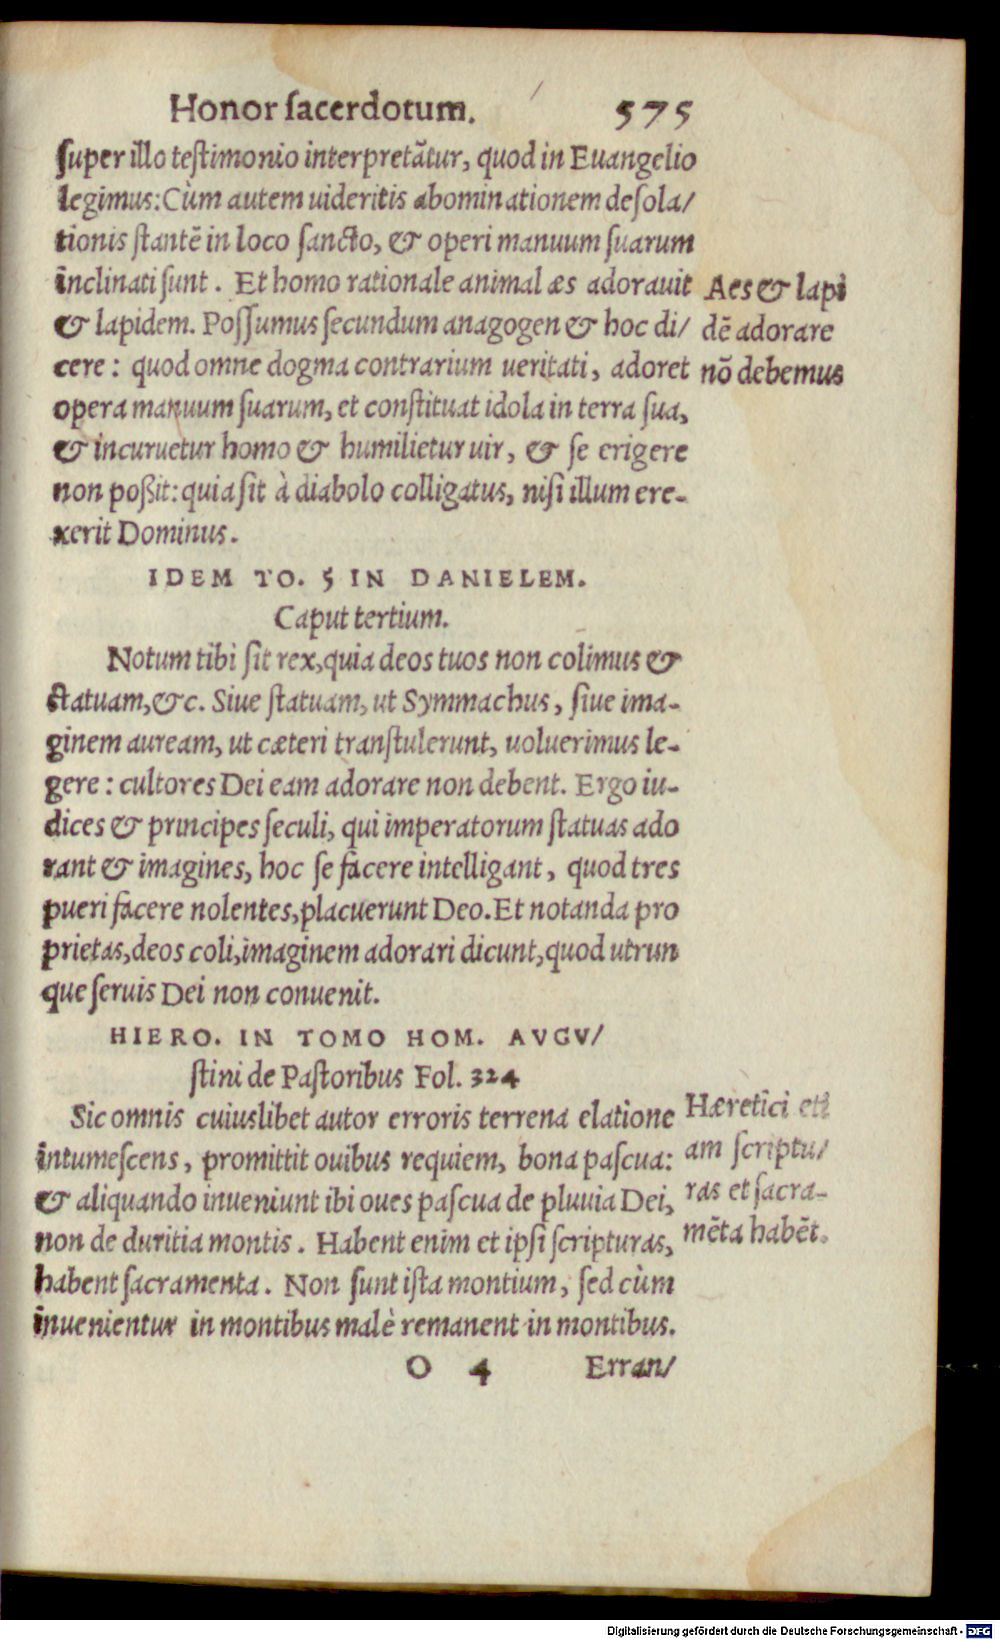 Honor ſacerdotum. 575
ſuper illo teſtimonio interpretãtur, quod in Euangelio
legimus: Cùm autem uideritis abominationem deſola/
tionis ſtantẽ in loco ſancto, & operi manuum ſuarum
inclinati ſunt. Et homo rationale animal æs adorauit
& lapidem. Poſſumus ſecundum anagogen & hoc di/
cere: quod omne dogma contrarium ueritati, adoret
opera manuum ſuarum, et conſtituat idola in terra ſua,
& incuruetur homo & humilietur uir, & ſe erigere
non poßit: quia ſit à diabolo colligatus, niſi illum ere-
xerit Dominus.
Aes & lapi
dẽ adorare
nõ debemus
IDEM TO. 5 IN DANIELEM.
Caput tertium.
Notum tibi ſit rex, quia deos tuos non colimus &
ſtatuam, &c. Siue ſtatuam, ut Symmachus, ſiue ima-
ginem auream, ut cæteri tranſtulerunt, uoluerimus le-
gere: cultores Dei eam adorare non debent. Ergo iu-
dices & principes ſeculi, qui imperatorum ſtatuas ado
rant & imagines, hoc ſe facere intelligant, quod tres
pueri facere nolentes, placuerunt Deo. Et notanda pro
prietas, deos coli, imaginem adorari dicunt, quod utrun
que ſeruis Dei non conuenit.
HIERO. IN TOMO HOM. AVGV/
ſtini de Paſtoribus Fol. 324
Sic omnis cuiuslibet autor erroris terrena elatione
intumeſcens, promittit ouibus requiem, bona paſcua:
& aliquando inueniunt ibi oues paſcua de pluuia Dei,
non de duritia montis. Habent enim et ipſi ſcripturas,
habent ſacramenta. Non ſunt iſta montium, ſed cùm
inuenientur in montibus malè remanent in montibus.
Hæretici eti
am ſcriptu/
ras et ſacra-
mẽta habẽt.
O 4 Erran/
Digitalisierung gefördert durch die Deutsche Forschungsgemeinschaft - DFG